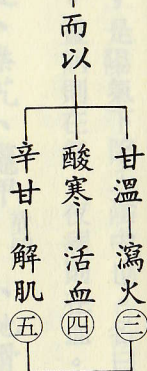 而以
甘溫—瀉火㊂
酸寒—活血㊃
辛甘—解肌㊄